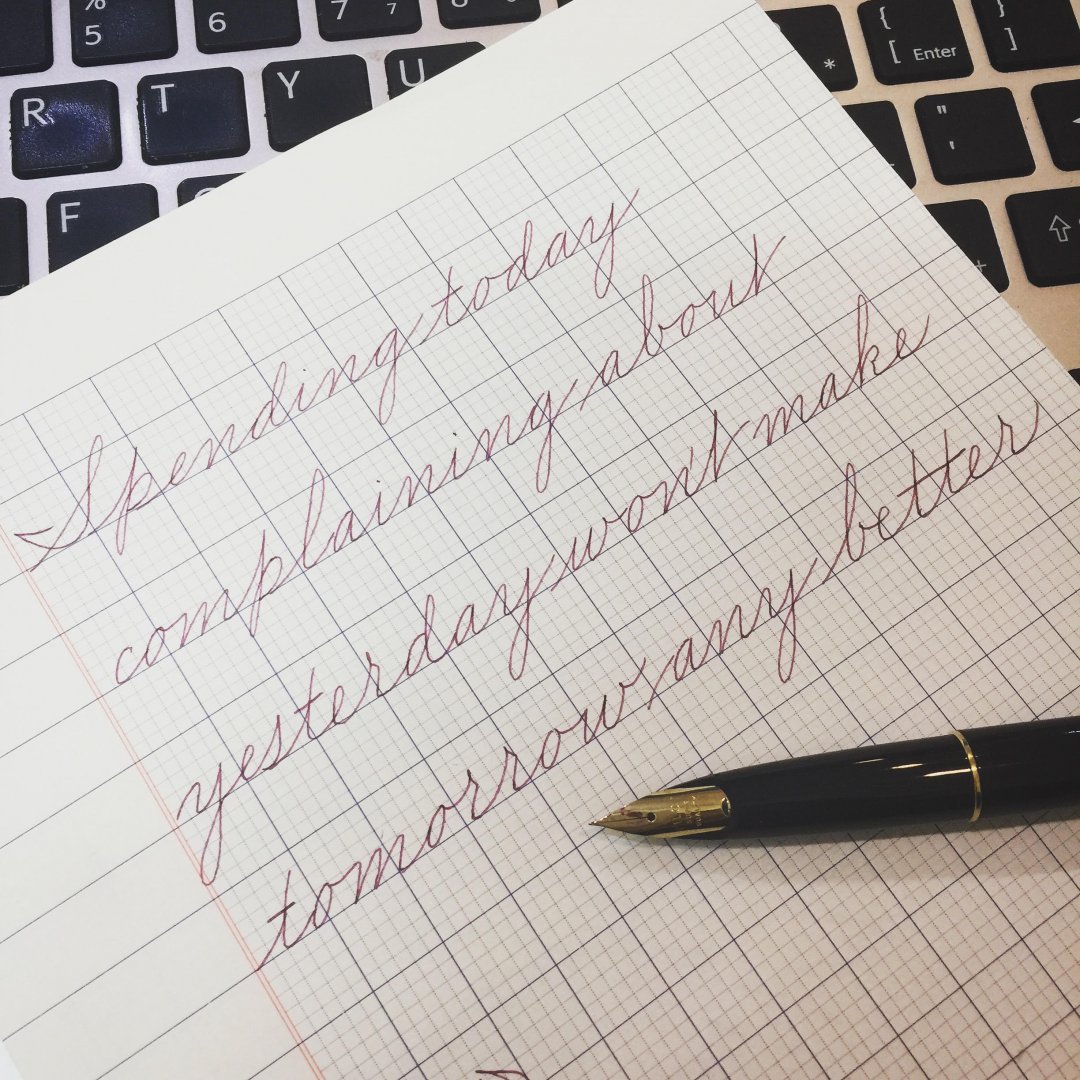 % 5
6
7 7
8 8
R
T
Y
U
F
* 
{ [ Enter
} ]
" '
+
Spending today
complaining about
yesterday won't make
tomorrow any better